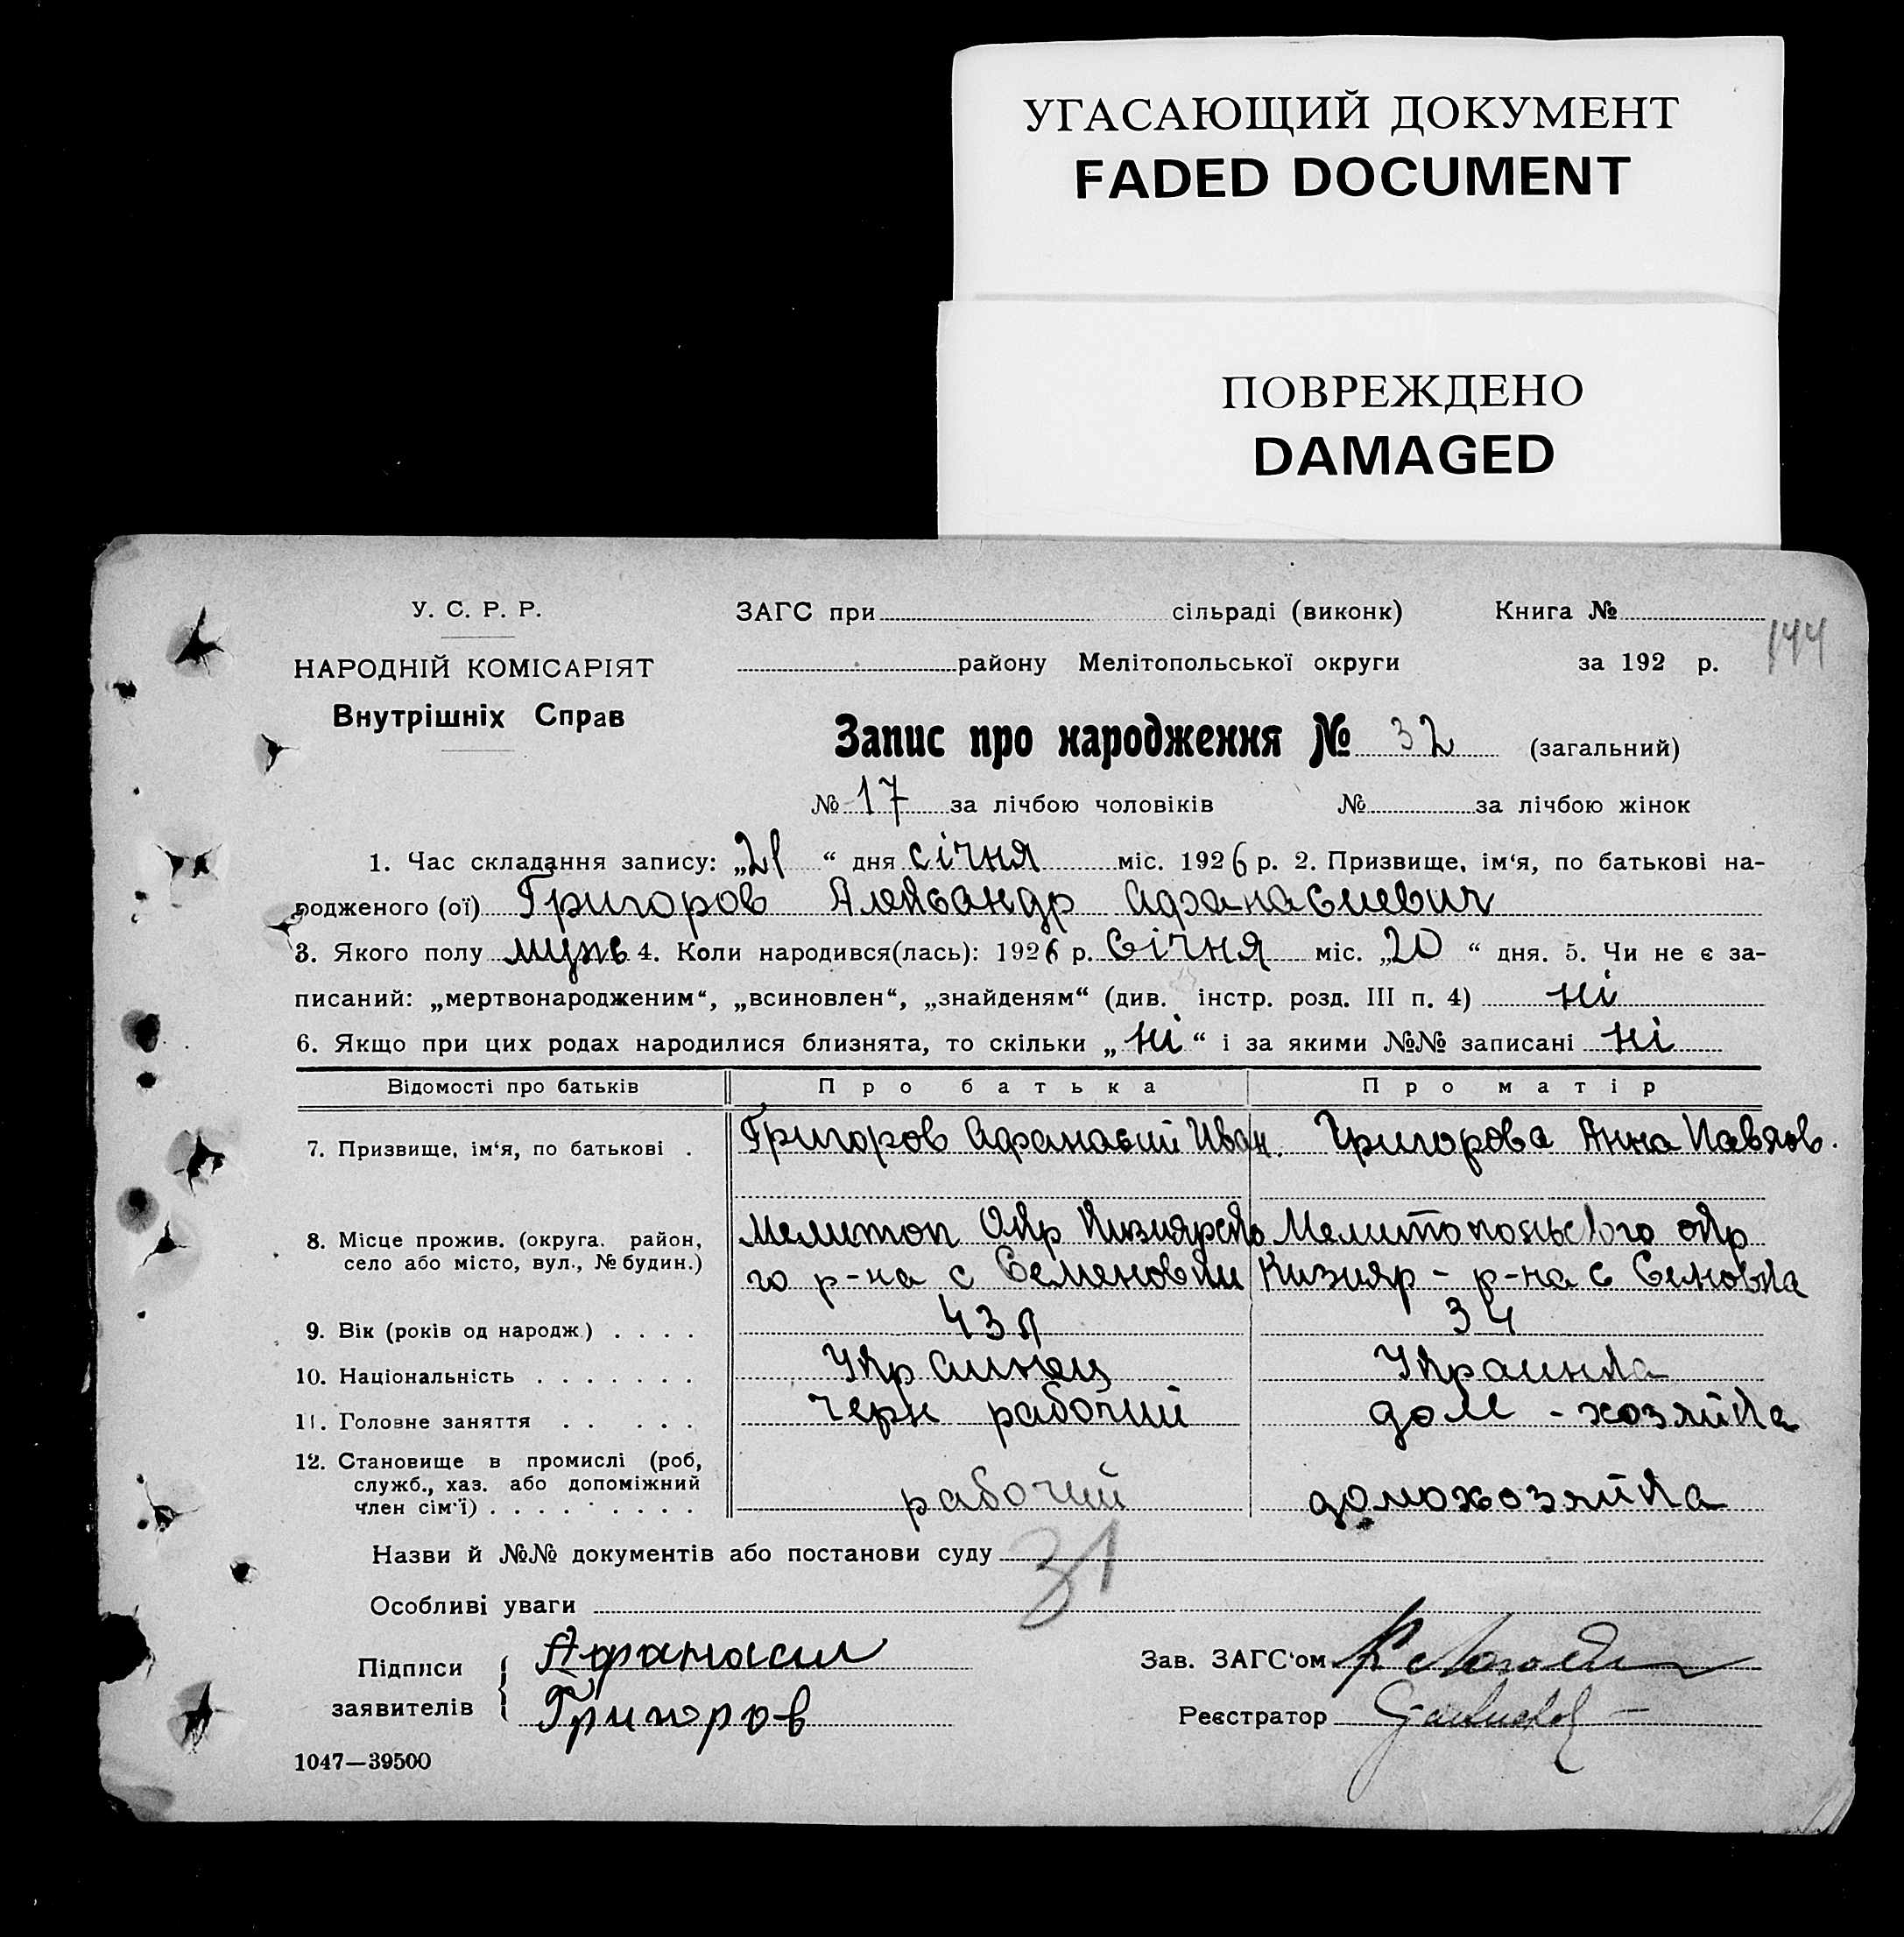 УГАСАЮЩИЙ ДОКУМЕНТ
FADED DOCUMENT
ПОВРЕЖДЕНО
DAMAGED
У. С. Р. Р. ЗАГС при сільраді (виконк) Книга №
144
НАРОДНІЙ КОМІСАРІЯТ району Мелітопольської округи за 192 р.
Внутрішніх Справ
Запис про народження № 32 (загальний)
№ 17 за лічбою чоловіків № за лічбою жінок
1. Час складання запису: „21 “ дня січня міс. 1926 р. 2. Призвище, ім‘я, по батькові на-
родженого (ої) Григоров Александр Афанасиевич
3. Якого полу мужь 4. Коли народився(лась): 1926 р. Січня міс. „20 “ дня. 5. Чи не є за-
писаний: „мертвонародженим“, „всиновлен“, „знайденям“ (див. інстр. розд. III п. 4) ні
6. Якщо при цих родах народилися близнята, то скільки „ні“ і за якими №№ записані ні
Відомості про батьків Про батька Про матір
7. Призвище, ім‘я, по батькові . Григоров Афанасий Иван. Григорова Анна Павлов.
8. Місце прожив. (округа. район, Мелитоп Окр Кизиярско Мелитопольского окр
село або місто, вул., № будин.) го р-на с Семеновки Кизияр - р-на с Семовка
9. Вік (років од народж.) . . . . 43 л 34
10. Національність . . . . . . . Украинец Украинка
11. Головне заняття . . . . . черн рабочий дом - хозяйка
12. Становище в промислі (роб,
служб., хаз. або допоміжний
член сім‘ї) . . . . . . . . . рабочий домохозяйка
Назви й №№ документів або постанови суду
31
Особливі уваги
Підписи Афанасии Зав. ЗАГС‘ом
заявителів Григоров Реєстратор
1047—39500